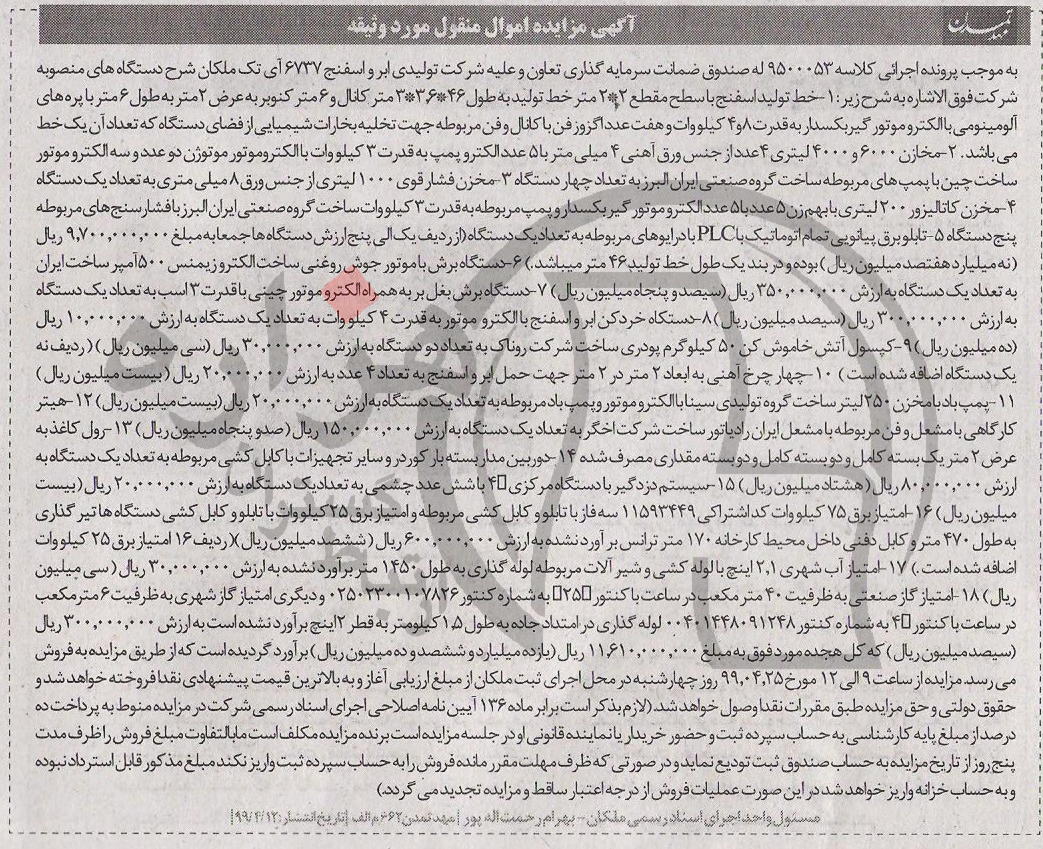 آگهی مزایده اموال منقول مورد وثیقه
مهد تمدن
به موجب پرونده اجرائی کلاسه ۹۵۰۰۰۵۳ له صندوق ضمانت سرمایه گذاری تعاون و علیه شرکت تولیدی ابر و اسفنج ۶۷۳۷ آی تک ملکان شرح دستگاه های منصوبه
شرکت فوق الاشاره به شرح زیر: ۱-خط تولید اسفنج با سطح مقطع ۲*۲ متر خط تولید به طول ۴۶*۳،۶*۳ متر کانال و ۶ متر کنویر به عرض ۲ متر به طول ۶ متر با پره های
آلومینومی با الکترو موتور گیربکسدار به قدرت ۸و۴ کیلو وات و هفت عدد اگزوز فن با کانال و فن مربوطه جهت تخلیه بخارات شیمیایی از فضای دستگاه که تعداد آن یک خط
می باشد. ۲-مخازن ۶۰۰۰ و ۴۰۰۰ لیتری ۴ عدد از جنس ورق آهنی ۴ میلی متر با ۵ عدد الکترو پمپ به قدرت ۳ کیلو وات با الکترو موتور موتوژن دو عدد و سه الکترو موتور
ساخت چین با پمپ های مربوطه ساخت گروه صنعتی ایران البرز به تعداد چهار دستگاه ۳-مخزن فشار قوی ۱۰۰۰ لیتری از جنس ورق ۸ میلی متری به تعداد یک دستگاه
۴-مخزن کاتالیزور ۲۰۰ لیتری با بهم زن ۵ عدد با ۵ عدد الکترو موتور گیربکسدار و پمپ مربوطه به قدرت ۳ کیلو وات ساخت گروه صنعتی ایران البرز با فشار سنج های مربوطه
پنج دستگاه ۵-تابلو برق پیانویی تمام اتوماتیک با PLC با درایوهای مربوطه به تعداد یک دستگاه (از ردیف یک الی پنج ارزش دستگاه ها جمعا به مبلغ ۹,۷۰۰,۰۰۰,۰۰۰ ریال
(نه میلیارد هفتصد میلیون ریال) بوده و در بند یک طول خط تولید ۴۶ متر میباشد.) ۶-دستگاه برش با موتور جوش روغنی ساخت الکترو زیمنس ۵۰۰ آمپر ساخت ایران
به تعداد یک دستگاه به ارزش ۳۵۰,۰۰۰,۰۰۰ ریال (سیصد و پنجاه میلیون ریال) ۷-دستگاه برش بغل بر به همراه الکترو موتور چینی با قدرت ۳ اسب به تعداد یک دستگاه
به ارزش ۳۰۰,۰۰۰,۰۰۰ ریال (سیصد میلیون ریال) ۸-دستگاه خردکن ابر و اسفنج با الکترو موتور به قدرت ۴ کیلو وات به تعداد یک دستگاه به ارزش ۱۰,۰۰۰,۰۰۰ ریال
(ده میلیون ریال) ۹-کپسول آتش خاموش کن ۵۰ کیلوگرم پودری ساخت شرکت روناک به تعداد دو دستگاه به ارزش ۳۰,۰۰۰,۰۰۰ ریال (سی میلیون ریال) (ردیف نه
یک دستگاه اضافه شده است) ۱۰-چهار چرخ آهنی به ابعاد ۲ متر در ۲ متر جهت حمل ابر و اسفنج به تعداد ۴ عدد به ارزش ۲۰,۰۰۰,۰۰۰ ریال (بیست میلیون ریال)
۱۱-پمپ باد با مخزن ۲۵۰ لیتر ساخت گروه تولیدی سینا با الکترو موتور و پمپ باد مربوطه به تعداد یک دستگاه به ارزش ۲۰,۰۰۰,۰۰۰ ریال (بیست میلیون ریال) ۱۲-هیتر
کارگاهی با مشعل و فن مربوطه با مشعل ایران رادیاتور ساخت شرکت اخگر به تعداد یک دستگاه به ارزش ۱۵۰,۰۰۰,۰۰۰ ریال (صد و پنجاه میلیون ریال) ۱۳-رول کاغذ به
عرض ۲ متر یک بسته کامل و دو بسته کامل و دو بسته مقداری مصرف شده ۱۴-دوربین مدار بسته بار کوردر و سایر تجهیزات با کابل کشی مربوطه به تعداد یک دستگاه به
ارزش ۸۰,۰۰۰,۰۰۰ ریال (هشتاد میلیون ریال) ۱۵-سیستم دزدگیر با دستگاه مرکزی 4 با شش عدد چشمی به تعداد یک دستگاه به ارزش ۲۰,۰۰۰,۰۰۰ ریال (بیست
میلیون ریال) ۱۶-امتیاز برق ۷۵ کیلو وات کد اشتراکی ۱۱۵۹۳۴۴۹ سه فاز با تابلو و کابل کشی مربوطه و امتیاز برق ۲۵ کیلو وات با تابلو و کابل کشی دستگاه ها تیر گذاری
به طول ۴۷۰ متر و کابل دفنی داخل محیط کارخانه ۱۷۰ متر ترانس بر آورد نشده به ارزش ۶۰۰,۰۰۰,۰۰۰ ریال (ششصد میلیون ریال)( ردیف ۱۶ امتیاز برق ۲۵ کیلو وات
اضافه شده است.) ۱۷-امتیاز آب شهری ۲،۱ اینچ با لوله کشی و شیر آلات مربوطه لوله گذاری به طول ۱۴۵۰ متر بر آورد نشده به ارزش ۳۰,۰۰۰,۰۰۰ ریال (سی میلیون
ریال) ۱۸-امتیاز گاز صنعتی به ظرفیت ۴۰ متر مکعب در ساعت با کنتور 25 به شماره کنتور ۰۲۵۰۲۳۰۰۱۰۷۸۲۶ و دیگری امتیاز گاز شهری به ظرفیت ۶ متر مکعب
در ساعت با کنتور 4 به شماره کنتور ۰۰۴۰۱۴۴۸۰۹۱۲۴۸ لوله گذاری در امتداد جاده به طول ۱،۵ کیلومتر به قطر ۲ اینچ برآورد نشده است به ارزش ۳۰۰,۰۰۰,۰۰۰ ریال
(سیصد میلیون ریال) که کل هجده مورد فوق به مبلغ ۱۱,۶۱۰,۰۰۰,۰۰۰ ریال (یازده میلیارد و ششصد و ده میلیون ریال) برآورد گردیده است که از طریق مزایده به فروش
می رسد. مزایده از ساعت ۹ الی ۱۲ مورخ ۹۹,۰۴,۲۵ روز چهارشنبه در محل اجرای ثبت ملکان از مبلغ ارزیابی آغاز و به بالاترین قیمت پیشنهادی نقدا فروخته خواهد شد و
حقوق دولتی و حق مزایده طبق مقررات نقدا وصول خواهد شد. (لازم بذکر است برابر ماده ۱۳۶ آیین نامه اصلاحی اجرای اسناد رسمی شرکت در مزایده منوط به پرداخت ده
درصد از مبلغ پایه کارشناسی به حساب سپرده ثبت و حضور خریدار یا نماینده قانونی او در جلسه مزایده است برنده مزایده مکلف است مابالتفاوت مبلغ فروش را ظرف مدت
پنج روز از تاریخ مزایده به حساب صندوق ثبت تودیع نماید و در صورتی که ظرف مهلت مقرر مانده فروش را به حساب سپرده ثبت واریز نکند مبلغ مذکور قابل استرداد نبوده
و به حساب خزانه واریز خواهد شد در این صورت عملیات فروش از درجه اعتبار ساقط و مزایده تجدید می گردد.)
مسئول واحد اجرای اسناد رسمی ملکان - بهرام رحمت اله پور | مهد تمدن ۶۶۲ م الف | تاریخ انتشار: ۹۹/۴/۱۲|